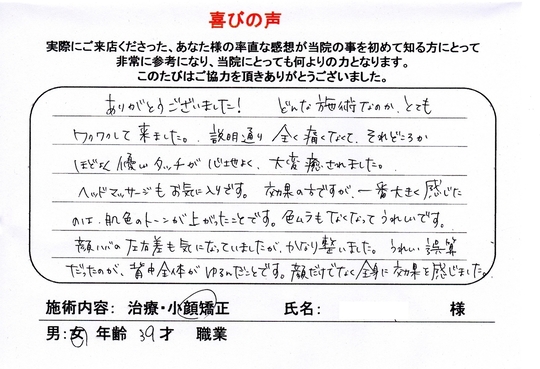 喜びの声
実際にご来店くださった、あなた様の率直な感想が当院の事を初めて知る方にとって
非常に参考になり、当院にとっても何よりの力となります。
このたびはご協力を頂きありがとうございました。
ありがとうございました! どんな施術なのか、とても
ワクワクして来ました。説明通り 全く痛くなくて、それどころか
ほどよく優しいタッチが心地よく、大変癒されました。
ヘッドマッサージもお気に入りです。 効果の方ですが、一番大きく感じた
のは、肌色のトーンが上がったことです。色ムラもなくなってうれしいです。
顔の左右差も気になっていましたが、かなり整いました。うれしい誤算
だったのが、背中全体がゆるんだことです。顔だけでなく全身に効果を感じました。
施術内容: 治療・小顔矯正 氏名: 様
男:女 年齢 39才 職業